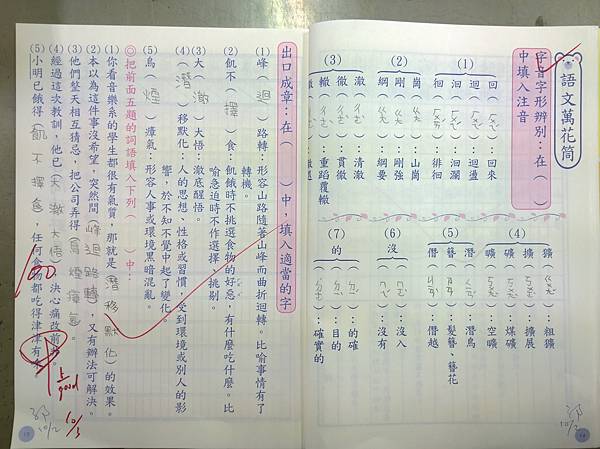 語文萬花筒
字音字形辨別：在（　）中填入注音
(1)
回（ㄏㄨㄟˊ）：回來
迴（ㄏㄨㄟˊ）：迴盪
洄（ㄏㄨㄟˊ）：洄瀾
徊（ㄏㄨㄞˊ）：徘徊
(2)
崗（ㄍㄤ）：山崗
剛（ㄍㄤ）：剛強
綱（ㄍㄤ）：綱要
(3)
澈（ㄔㄜˋ）：清澈
徹（ㄔㄜˋ）：貫徹
轍（ㄔㄜˋ）：重蹈覆轍
(4)
獷（ㄍㄨㄤˇ）：粗獷
擴（ㄎㄨㄛˋ）：擴展
礦（ㄎㄨㄤˋ）：煤礦
曠（ㄎㄨㄤˋ）：空曠
(5)
潛（ㄑㄧㄢˊ）：潛鳥
簪（ㄗㄢ）：髮簪、簪花
僭（ㄐㄧㄢˋ）：僭越
(6)
沒（ㄇㄛˋ）：沒入
（ㄇㄟˊ）：沒有
(7)
的（ㄉㄧˊ）：的確
（ㄉㄧˋ）：目的
（ㄉㄜ˙）：確實的
出口成章：在（　）中，填入適當的字
(1)峰（迴）路轉：形容山路隨著山峰而曲折迴轉。比喻事情有了
轉機。
(2)飢不（擇）食：飢餓時不挑選食物的好惡，有什麼吃什麼。比
喻急迫時不作選擇、挑剔。
(3)大（澈）大悟：徹底醒悟。
(4)（潛）移默化：人的思想、性格或習慣，受到環境或別人的影
響，於不知不覺中起了變化。
(5)烏（煙）瘴氣：形容人事或環境黑暗混亂。
◎把前面五題的詞語填入下列（　）中：
(1)你看音樂系的學生都很有氣質，那就是（潛移默化）的效果。
(2)本以為這件事沒希望，突然間（峰迴路轉），又有辦法可解決。
(3)他們整天相互猜忌，把公司弄得（烏煙瘴氣）。
(4)經過這次教訓，他已（大澈大悟），決心痛改前非。
(5)小明已餓得（飢不擇食），任何食物都吃得津津有味。
100
good
10/3
10/2
10/2